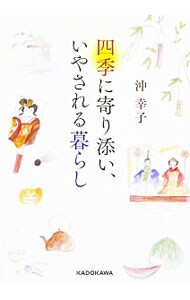 四季に寄り添い、
いやされる暮らし
沖 幸子
KADOKAWA